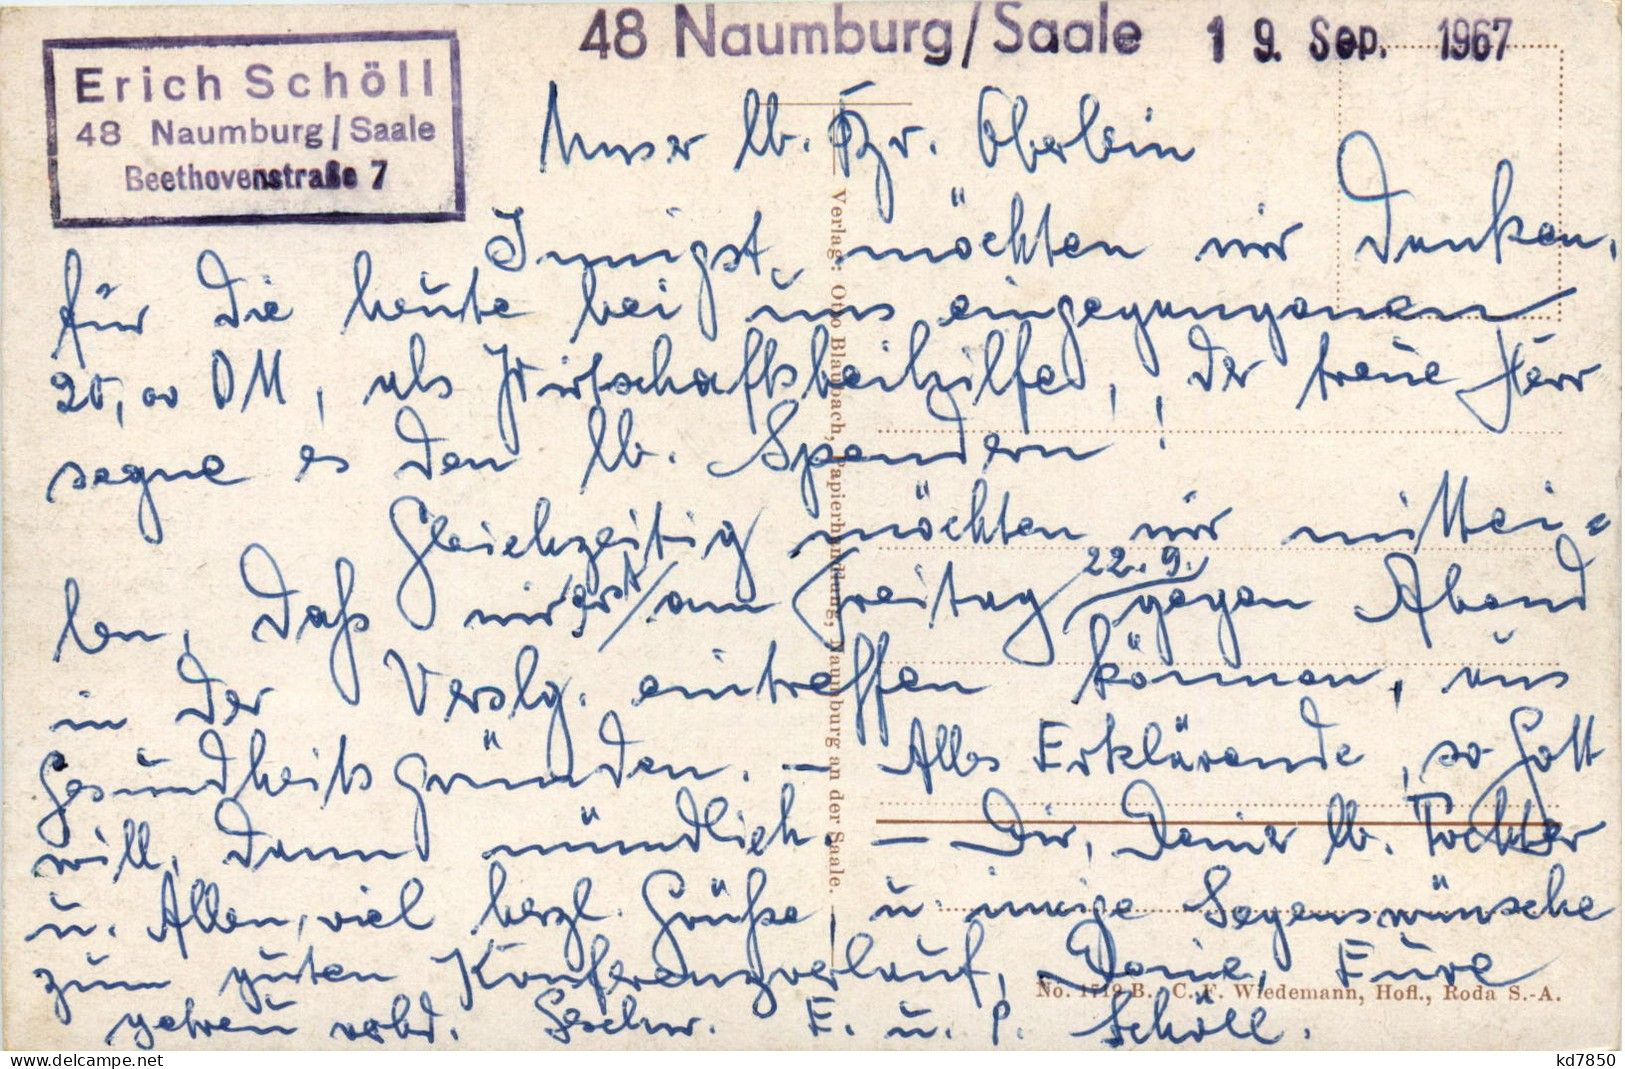 48 Naumburg/Saale 19. Sep. 1967
Erich Schöll
48 Naumburg/Saale
Beethovenstraße 7
Unser lb. Bzr. Oberlein
Innigst möchten wir danken,
für die heute bei uns eingegangenen
20,00 DM, als Wirtschaftsbeihilfe, der treue Herr
segne es den lb. Spendern!
Gleichzeitig möchten wir mittei=
len, daß wir erst am Freitag 22.9. gegen Abend
in der Verslg. eintreffen können, aus
Gesundheitsgründen. – Alles Erklärende, so Gott
will, dann mündlich. – Dir, Deiner lb. Tochter
u. Allen, viel herzl. Grüße, u. innige Segenswünsche
zum guten Konferenzverlauf, Deine, Eure
getreu vbd. Geschw. E. u. P. Schöll.
Verlag: Otto Blaubach, Papierhandlung, Naumburg an der Saale.
No. 1719 B. C. F. Wiedemann, Hofl., Roda S.-A.
kd7850